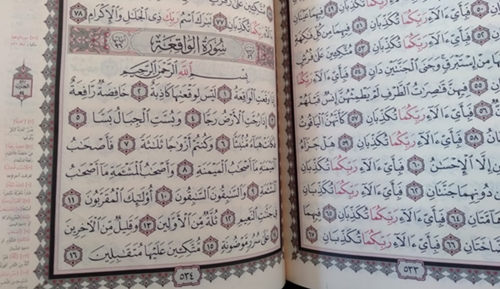 رَبِّكُمَا تُكَذِّبَانِ
فِيهِمَا مِن كُلِّ فَٰكِهَةٍ
رَبِّكُمَا تُكَذِّبَانِ ٥٣ مُتَّكِـِٔينَ عَلَىٰ فُرُشٍ
مِنْ إِسْتَبْرَقٍ وَجَنَى ٱلْجَنَّتَيْنِ دَانٍ ٥٤ فَبِأَيِّ
فِيهِنَّ قَٰصِرَٰتُ ٱلطَّرْفِ لَمْ يَطْمِثْهُنَّ إِنسٌ قَبْلَهُمْ
فَبِأَيِّ ءَالَآءِ رَبِّكُمَا تُكَذِّبَانِ ٥٧ كَأَنَّهُنَّ ٱلْيَاقُوتُ
فَبِأَيِّ ءَالَآءِ رَبِّكُمَا تُكَذِّبَانِ ٥٩ هَلْ جَزَآءُ
إِلَّا ٱلْإِحْسَٰنُ ٦٠ فَبِأَيِّ ءَالَآءِ رَبِّكُمَا تُكَذِّبَانِ ٦١
دُونِهِمَا جَنَّتَانِ ٦٢ فَبِأَيِّ ءَالَآءِ رَبِّكُمَا تُكَذِّبَانِ
٦٤ فَبِأَيِّ ءَالَآءِ رَبِّكُمَا تُكَذِّبَانِ ٦٥ فِيهِمَا
٦٦ فَبِأَيِّ ءَالَآءِ رَبِّكُمَا تُكَذِّبَانِ ٦٧
٥٣٣
تُكَذِّبَانِ ٧٧ تَبَٰرَكَ ٱسْمُ رَبِّكَ ذِى ٱلْجَلَٰلِ وَٱلْإِكْرَامِ ٧٨
سُورَةُ الوَاقِعَةِ
بِسْمِ ٱللَّهِ ٱلرَّحْمَٰنِ ٱلرَّحِيمِ
إِذَا وَقَعَتِ ٱلْوَاقِعَةُ ١ لَيْسَ لِوَقْعَتِهَا كَاذِبَةٌ ٢ خَافِضَةٌ رَّافِعَةٌ
٣ إِذَا رُجَّتِ ٱلْأَرْضُ رَجًّا ٤ وَبُسَّتِ ٱلْجِبَالُ بَسًّا ٥
فَكَانَتْ هَبَآءً مُّنۢبَثًّا ٦ وَكُنتُمْ أَزْوَٰجًا ثَلَٰثَةً ٧ فَأَصْحَٰبُ
ٱلْمَيْمَنَةِ مَآ أَصْحَٰبُ ٱلْمَيْمَنَةِ ٨ وَأَصْحَٰبُ ٱلْمَشْـَٔمَةِ مَآ أَصْحَٰبُ
ٱلْمَشْـَٔمَةِ ٩ وَٱلسَّٰبِقُونَ ٱلسَّٰبِقُونَ ١٠ أُو۟لَٰٓئِكَ ٱلْمُقَرَّبُونَ ١١
فِى جَنَّٰتِ ٱلنَّعِيمِ ١٢ ثُلَّةٌ مِّنَ ٱلْأَوَّلِينَ ١٣ وَقَلِيلٌ مِّنَ ٱلْـَٔاخِرِينَ
١٤ عَلَىٰ سُرُرٍ مَّوْضُونَةٍ ١٥ مُّتَّكِـِٔينَ عَلَيْهَا مُتَقَٰبِلِينَ ١٦
٥٣٤